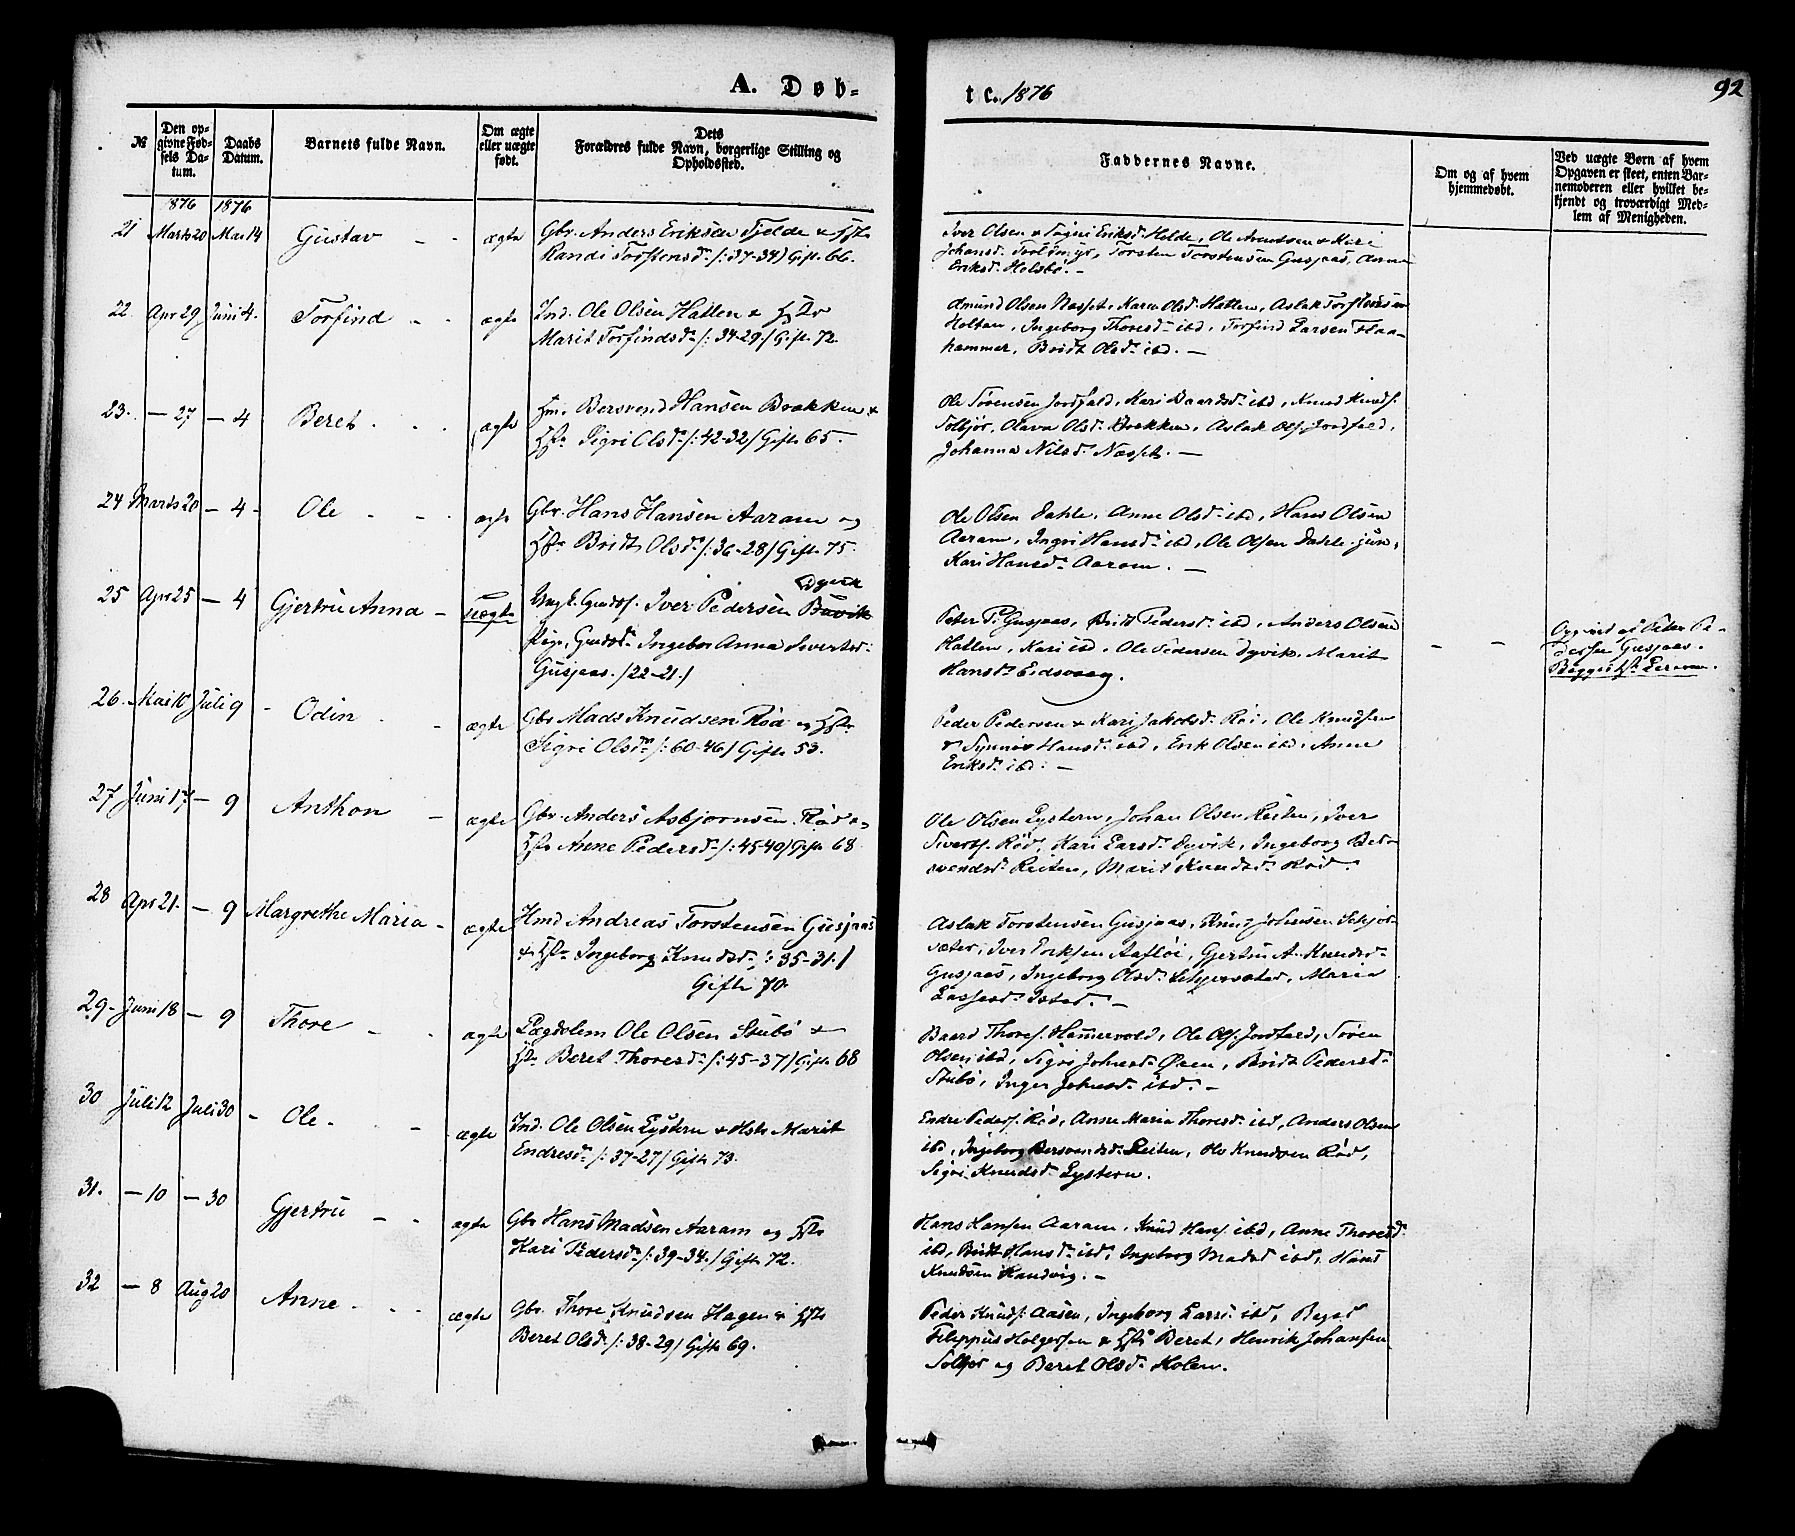 A. Døb-
t c. 1876
92
№
Den opgivne Fødsels Datum.
Daabs Datum.
Barnets fulde Navn.
Om ægte eller uægte født.
Dets Forældres fulde Navn, borgerlige Stilling og Opholdssted.
Faddernes Navne.
Om og af hvem hjemmedøbt.
Ved uægte Børn af hvem Opgaven er skeet, enten Barnemoderen eller hvilket bekjendt og troværdigt Medlem af Menigheden.
876 1876
21 Marts 20 Mai 14 Gustav - - ægte Gbr. Anders Eriksen Fjelde & Hst.
Randi Torstensd. /: 37-34) Gift. 66.
Iver Olsen & Eriksd. Helde, Ole & Kari
Johansd. Torsten Torstensen Gusjaas, Anna
Eriksd. Helsbø. -
22 Apr 29 Juni 4. Torfind - - ægte Ind. Ole Olsen Hatlen &
Marit Torfindsd. /: 34-29/ Gift. 72.
Olsen Næsset, Karen Olsd. Hatlen, Aslak
Holten, Ingeborg Thoresd. ibd, Torfind Larsen Flaa-
hammer, Bridt Olsd. ibd. -
23. - 27 - 4 Beret - - ægte Hm. Bersvend Hansen Brakken &
Hst. Sigri Olsd. /: 42-32/ Gift. 65.
Ole Sørensen Jordfald, Kari Baardsd. ibd, Knud Knuds.
Solljør, Olava Olsd. Brakken, Aslak Ols. Jordfald,
Johanna Nilsd. Næsset. -
24 Marts 20 - 4 - Ole - - ægte Gbr. Hans Hansen Aaram og
Hst. Bridt Olsd. /: 36-28/ Gift. 75.
Ole Olsen Dahle, Anne Olsd. ibd, Hans Olsen
Aaram, Ingri Hansd. ibd, Ole Olsen Dahle jun,
Kari Hansd. Aaram. -
25 Apr 25 - 4 Gjertru Anna - uægte Ungk. Gaards. Iver Pedersen Buvik Dyvik
Pige, Gaardsd. Ingebor Anna Sivertsd.
Gusjaas. /22-21/
Peter P. Gusjaas, Bridt Pedersd. ibd, Anders Olsen
Hatlen, Kari ibd, Ole Pedersen Dyvik, Marit
Hansd. Eidsvaag.
- -
af Peter Pe-
dersen Gusjaas.
Begges
26. Mai 16 Juli 9 - Odin - - ægte Gbr Mads Knudsen Rød og Hst.
Sigri Olsd. /: 60-46/ Gift. 53.
Peder Pedersen & Kari Jakobsd. Rød, Ole Knudsen
& Synnøv Hansd. ibd, Erik Olsen ibd, Anne
Eriksd. ibd. -
27 Juni 17 - 9 Anthon - ægte Gbr. Anders Asbjørnsen Rød &
Hst. Anne Pedersd. /: 45-40/ Gift. 68
Ole Olsen Lystern, Johan Olsen Reiten, Iver
Siverts. Rød, Kari Larsd. Dyvik, Ingeborg Ber-
svendsd. Reiten, Marit Knudsd. Rød.
28 Apr 21. - 9 Margrethe Maria - ægte Hmd Andreas Torstensen Gusjaas
& Hst. Ingeborg Knudsd. /: 35-31./
Gifte 70.
Aslak Torstensen Gusjaas, Knud Johnsen Schjør-
sæter, Iver Eriksen Aafløi, Gjertru A. Knudsd.
Gusjaas, Ingeborg Olsd. Schjørsæter, Maria
Lassesd. -
29 - Juni 18 - 9 Thore - - ægte Lægdslem Ole Olsen Stubø &
Hst. Beret Thoresd. /: 45-37/ Gift. 68
Baard Thores. Hammervold, Ole Ols. Jordfald, Søren
Olsen ibd, Sigri Johnsd. Øren, Bridt Pedersd.
Stubø, Inger Johnsd. ibd. -
30 Juli 12 Juli 30 - Ole. - ægte Ind. Ole Olsen Lystern & Hst. Marit
Endresd. /: 37-27/ Gift. 73.
Endre Peders. Rød, Anne Maria Thoresd. ibd, Anders Olsen
ibd, Ingeborg Bersvendsd. Reiten, Ole Knudsen Rød,
Sigri Knudsd. Lystern.
31. - 10 - 30 Gjertru - - ægte Gbr Hans Madsen Aaram og Hst.
Kari Pedersd. /: 39-34./ Gift. 72.
Hans Hansen Aaram, Knud Hans. ibd, Anne Thoresd.
ibd, Bridt Hansd. ibd, Ingeborg Madsd. ibd, Hans
Knudsen Sandvig. -
32 - 8 Aug 20 Anne - - - ægte Gbr. Thore Knudsen Hagen & Hst.
Beret Olsd. /: 38-29/ Gift. 69.
Peder Knuds. Aasen, Ingeborg Larsd. ibd,
Filippus Holgersen & Hst. Beret, Henrik Johansen
Solljør og Beret Olsd. Holen.